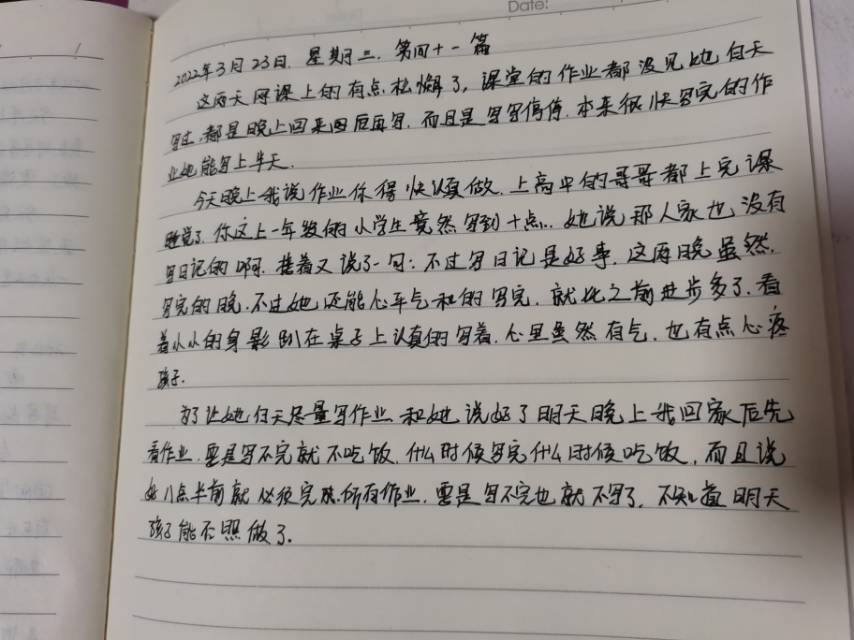 Date:
2022年3月23日. 星期三. 第四十一篇
这两天网课上的有点松懈了, 课堂的作业都没见她白天
写过. 都是晚上回来因后再写. 而且是写写停停. 本来很快写完的作
业她能写上半天.
今天晚上我说作业你得快认真做. 上高中的哥哥都上完课
睡觉了. 你这上一年级的小学生竟然写到十点.. 她说那人家也没有
写日记的啊. 接着又说了一句: 不过写日记是好事. 这两晚虽然.
写完的晚. 不过她还能心平气和的写完. 就比之前进步多了. 看
着小小的身影趴在桌子上认真的写着. 心里虽然有气. 也有点心疼
孩子.
为了让她白天尽量写作业. 和她说好了明天晚上我回家后先
看作业. 要是写不完就不吃饭. 什么时候写完什么时候吃饭. 而且说
好八点半前就必须完成所有作业. 要是写不完也就不写了. 不知道明天
孩子能不照做了.